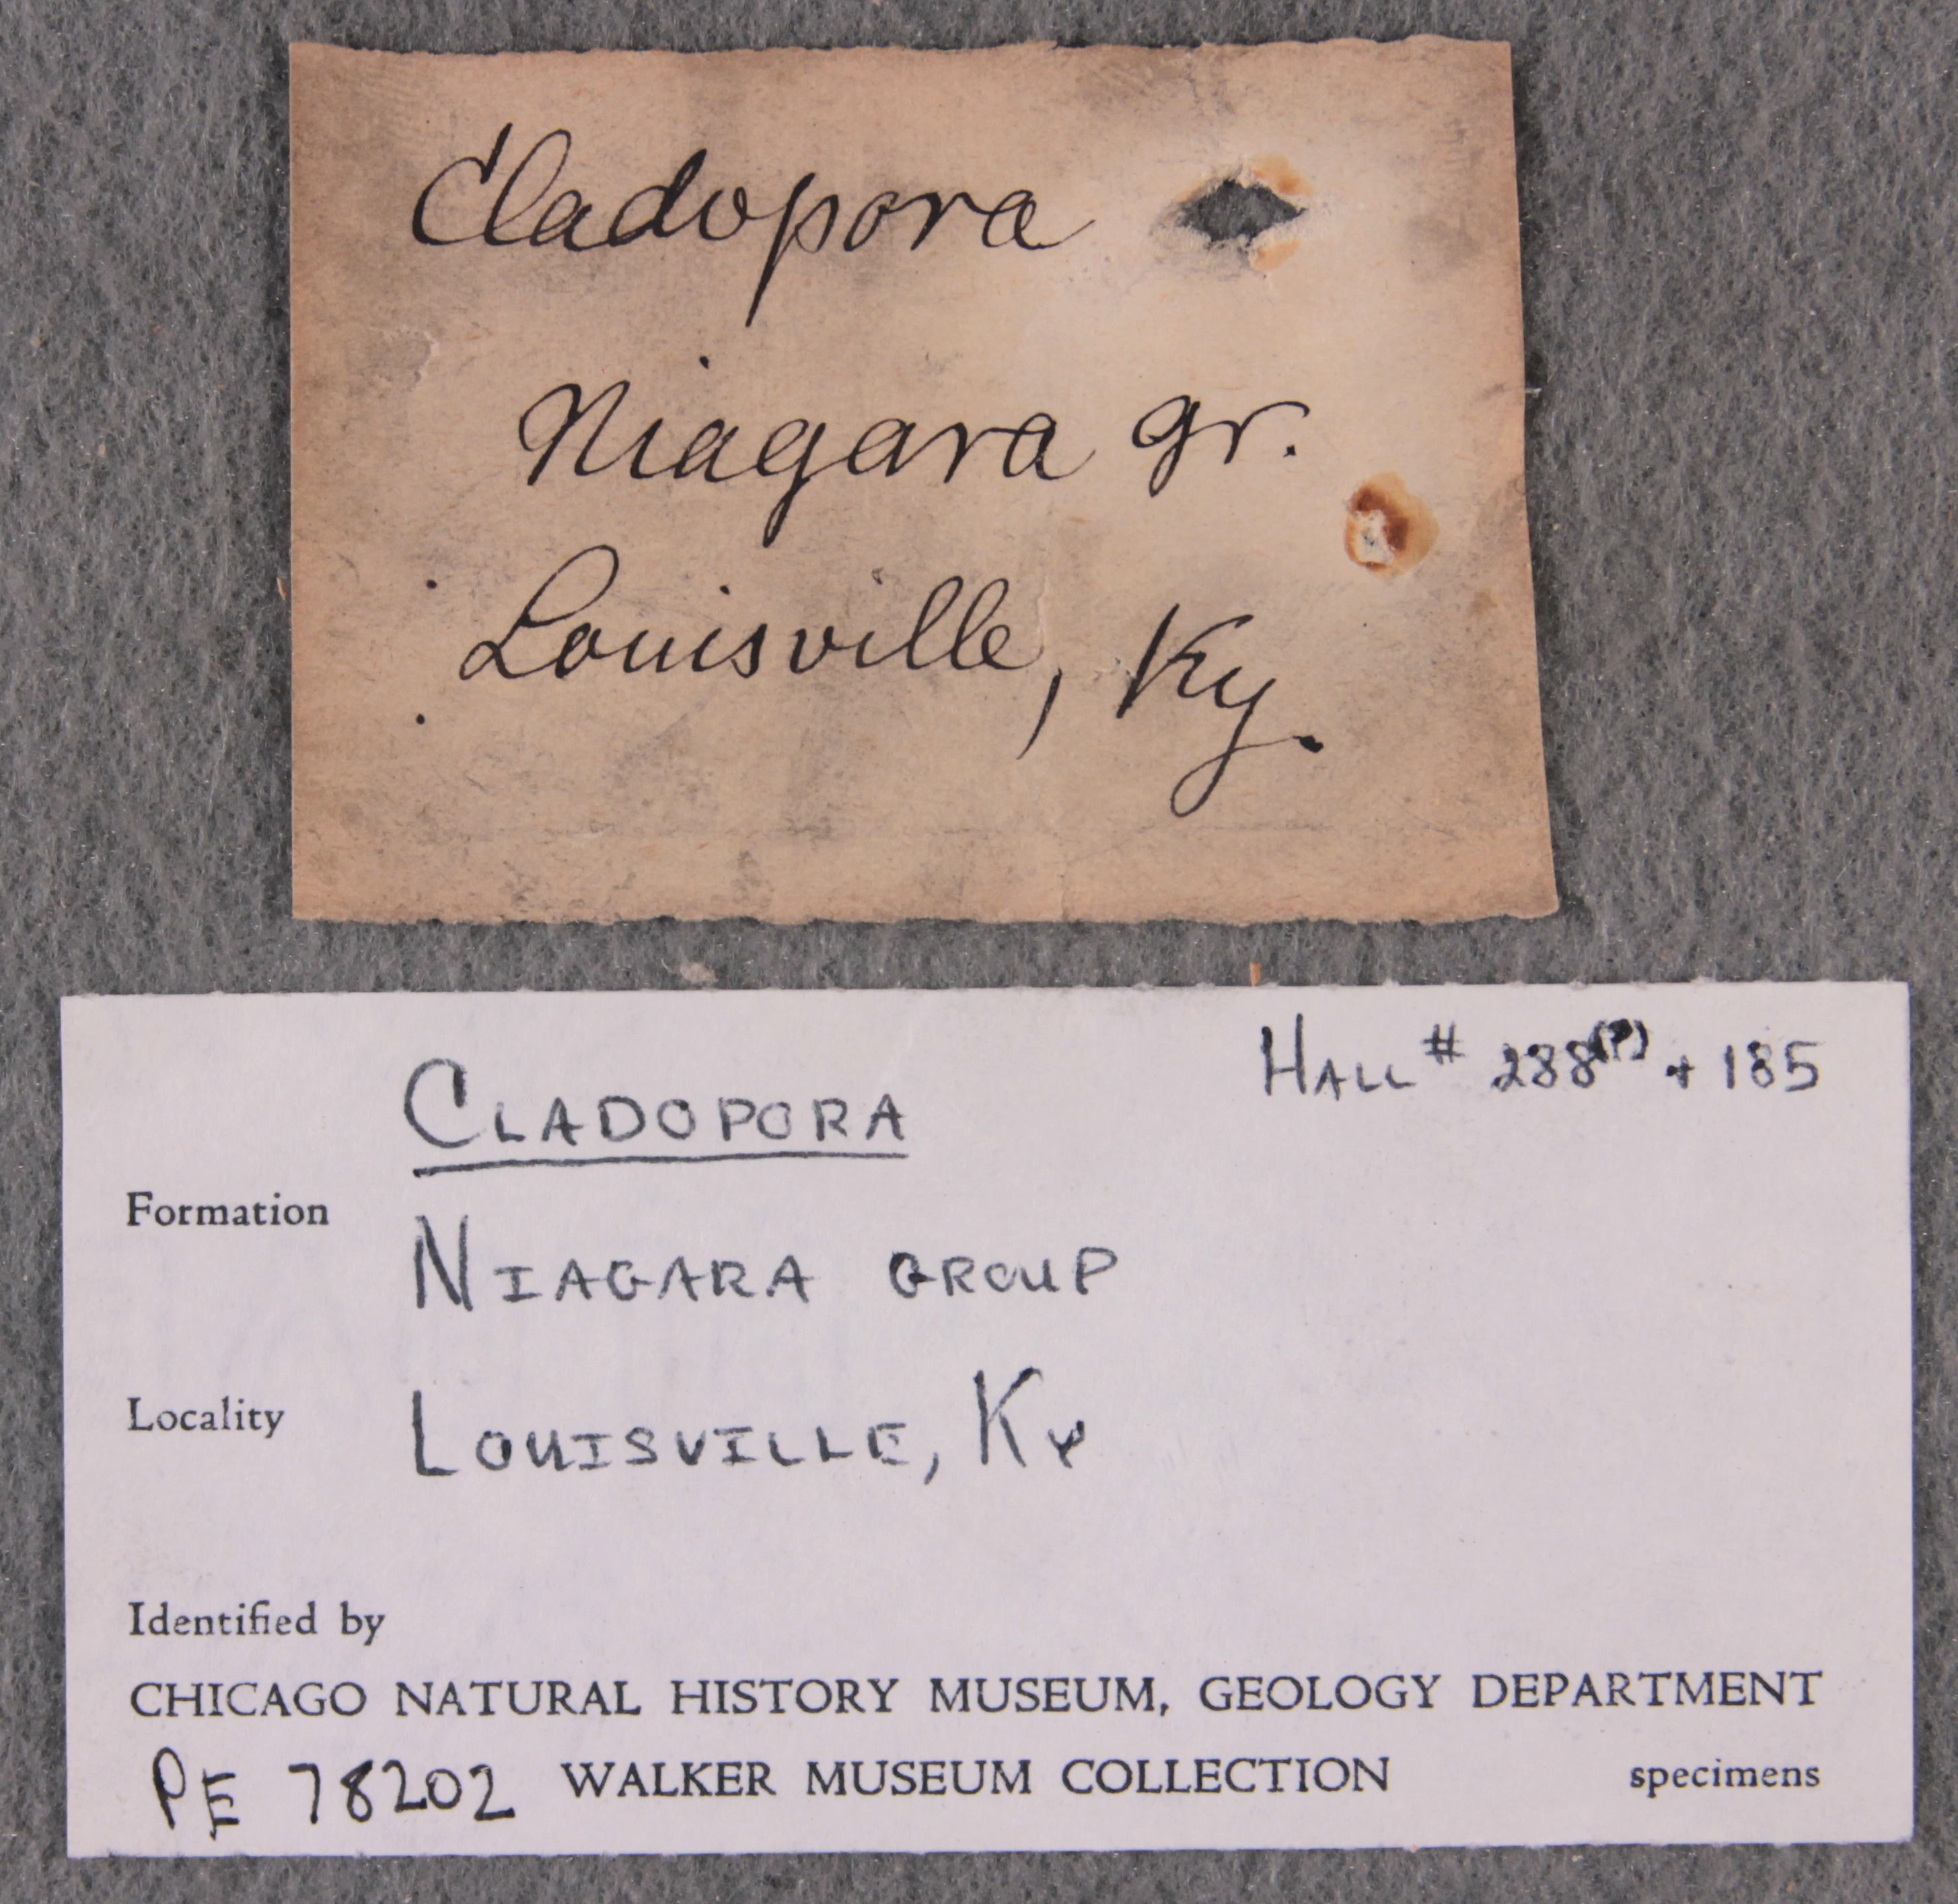 Cladopora
Niagara gr.
Louisville, Ky.
HALL # 288(?) + 185
CLADOPORA
Formation NIAGARA GROUP
Locality LOUISVILLE, KY
Identified by
CHICAGO NATURAL HISTORY MUSEUM, GEOLOGY DEPARTMENT
PE 78202 WALKER MUSEUM COLLECTION specimens